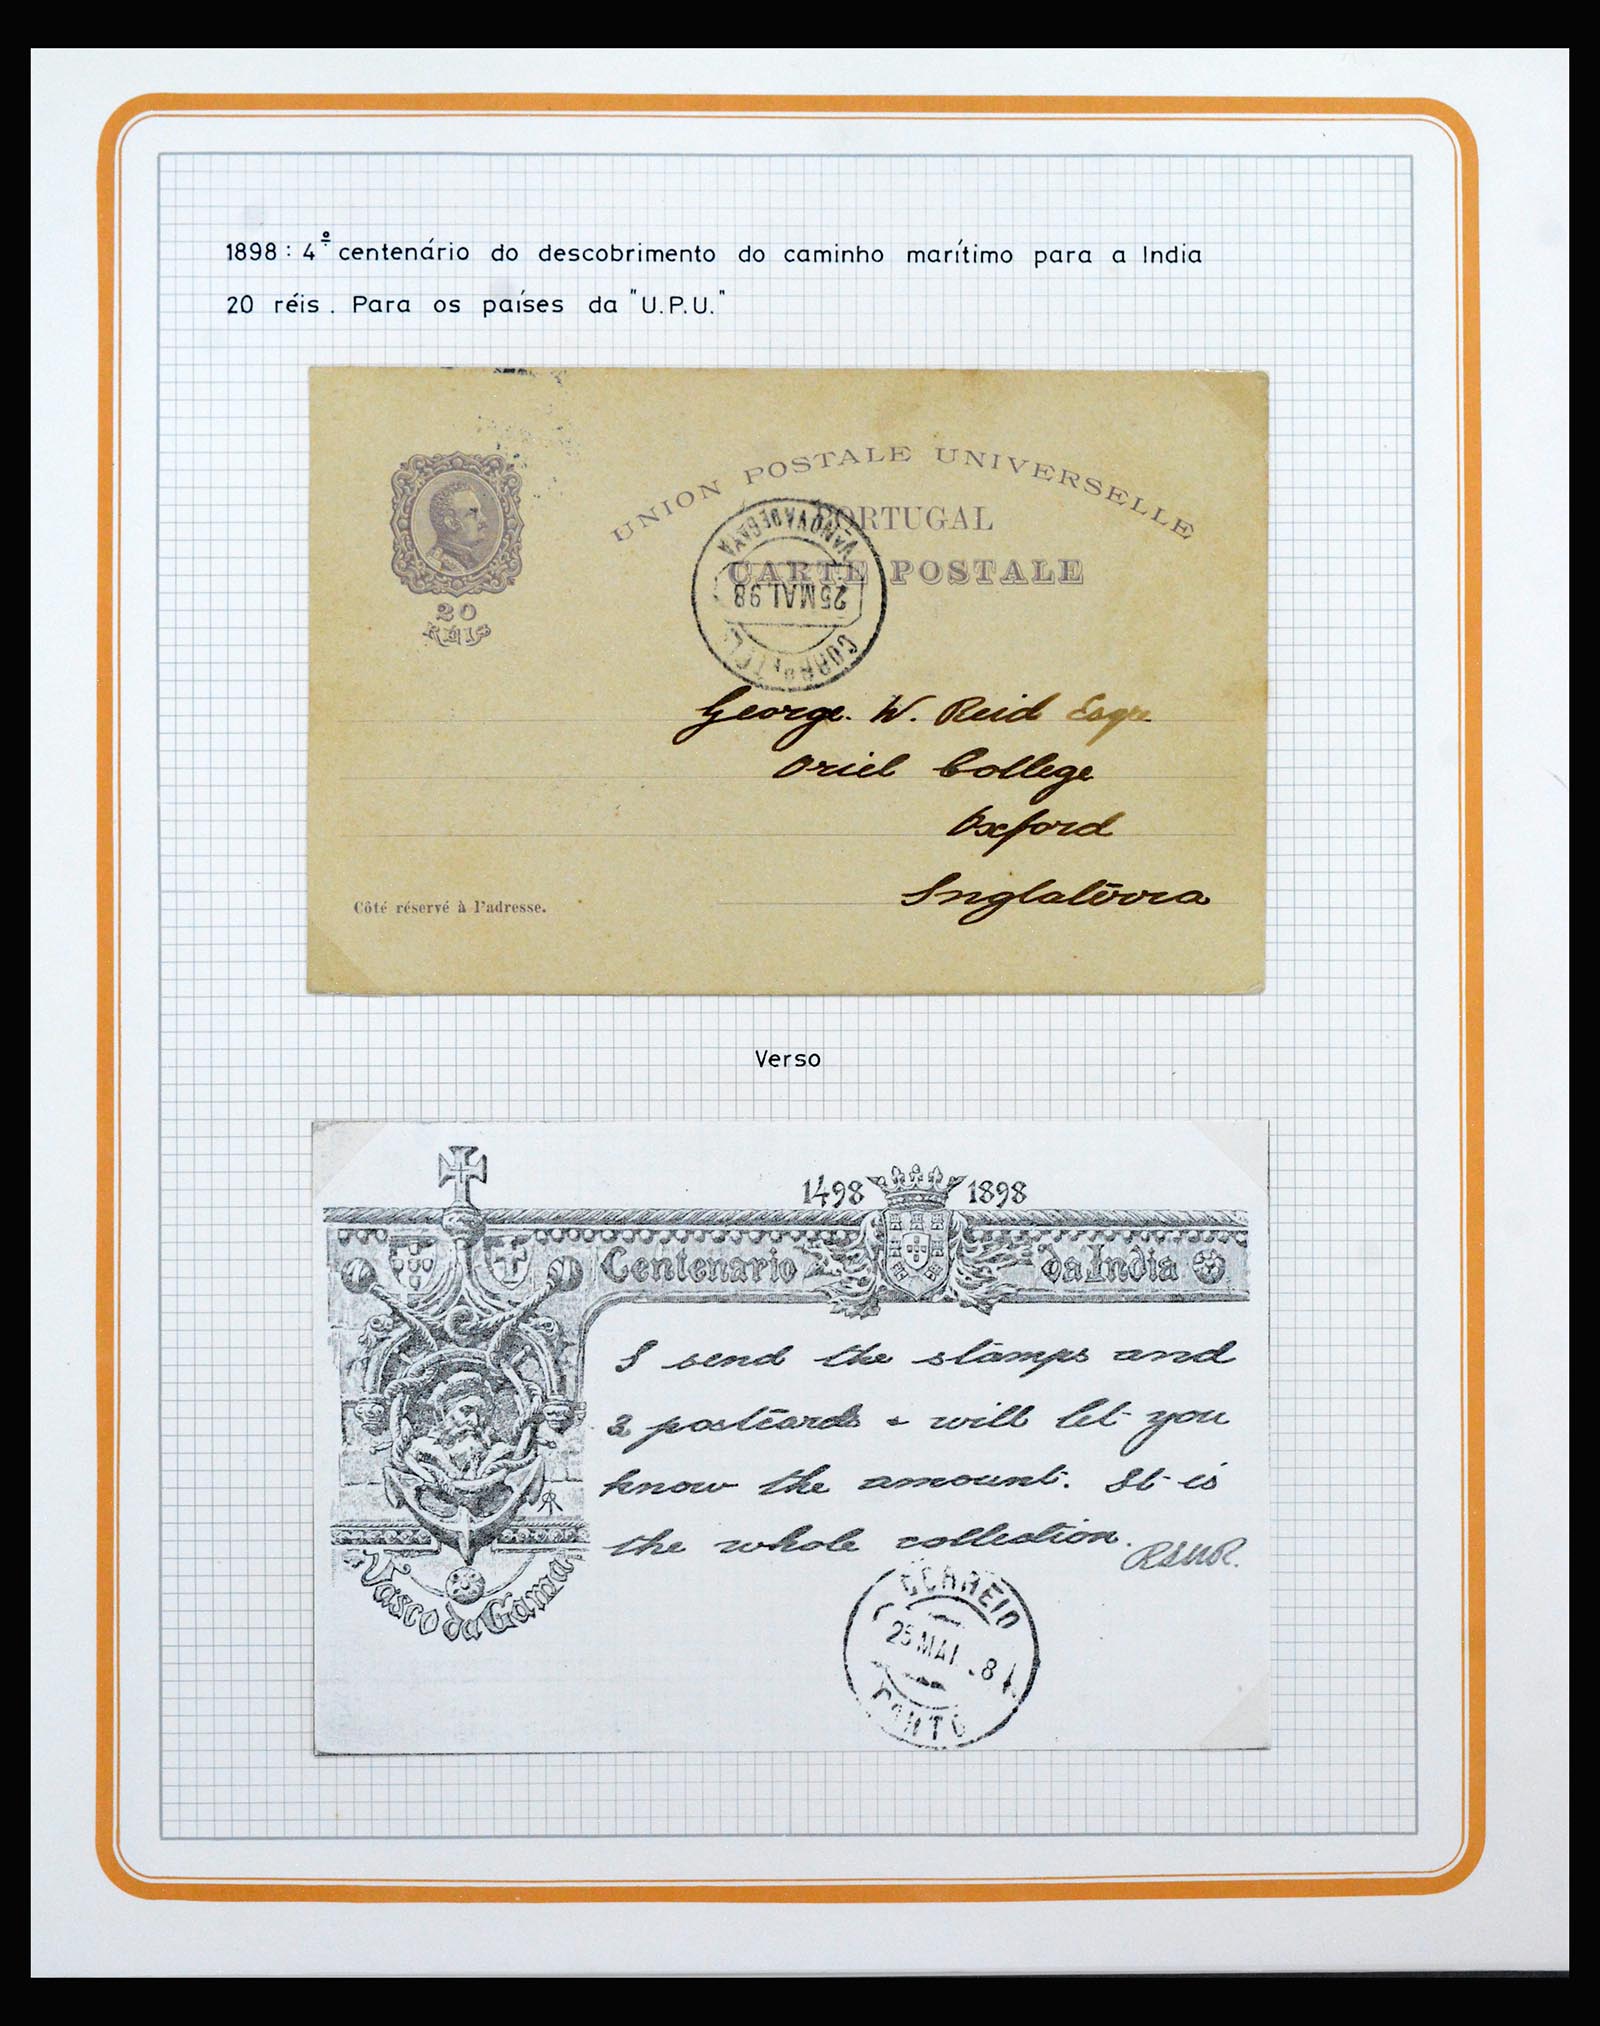 1898: 4º centenário do descobrimento do caminho marítimo para a India
20 réis. Para os países da "U.P.U."
UNION POSTALE UNIVERSELLE
PORTUGAL
CARTE POSTALE
20
RÉIS
VA NOVA DE GAYA
25 MAI 98
George. W. Reid Esqre
Oriel College
Oxford
Inglatérra
Côté réservé à l'adresse.
Verso
1498 1898
Centenario da India
I send the stamps and
2 postcards & will let you
know the amount. It is
the whole collection.
Vasco da Gama
CORREIO
25 MAI 8